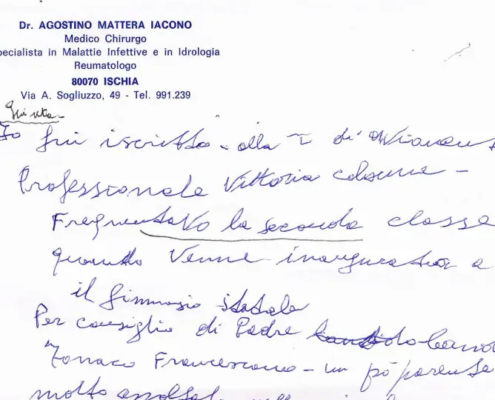 Dr. AGOSTINO MATTERA IACONO
Medico Chirurgo
pecialista in Malattie Infettive e in Idrologia
Reumatologo
80070 ISCHIA
Via A. Sogliuzzo, 49 - Tel. 991.239
Io fui iscritto - alla I di
Professionale Vittoria Colonna -
Frequentavo la seconda classe
quando venne inaugurato a
il Ginnasio statale
Per consiglio di Padre
Francescano - un pò parente
molto